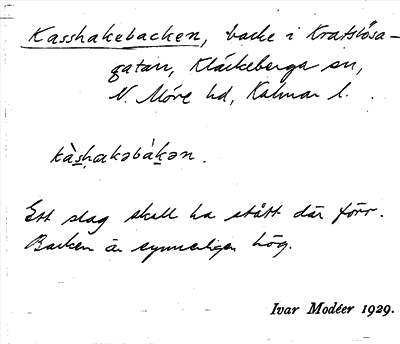 Kasshakebacken, backe i Kratslösa-
gatan, Kläckeberga sn,
N. Möre hd, Kalmar l.
kàs̱hakəbàḵən.
Ett slag skall ha stått där förr.
Backen är synnerligen hög.
Ivar Modéer 1929.